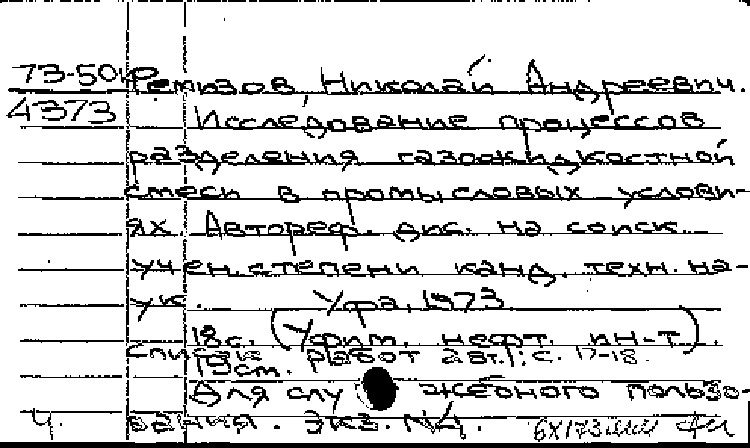 73-50
4373
Ремизов, Николай Андреевич.
Исследование процессов
разделения газожидкостной
смеси в промысловых услови-
ях. Автореф. дис. на соиск.
учен. степени канд. техн. на-
ук. Уфа, 1973.
18с. (Уфим. нефт. ин-т).
Список работ авт.: с. 17-18.
Для служебного пользо-
вания. Экз. №4.
Ч.